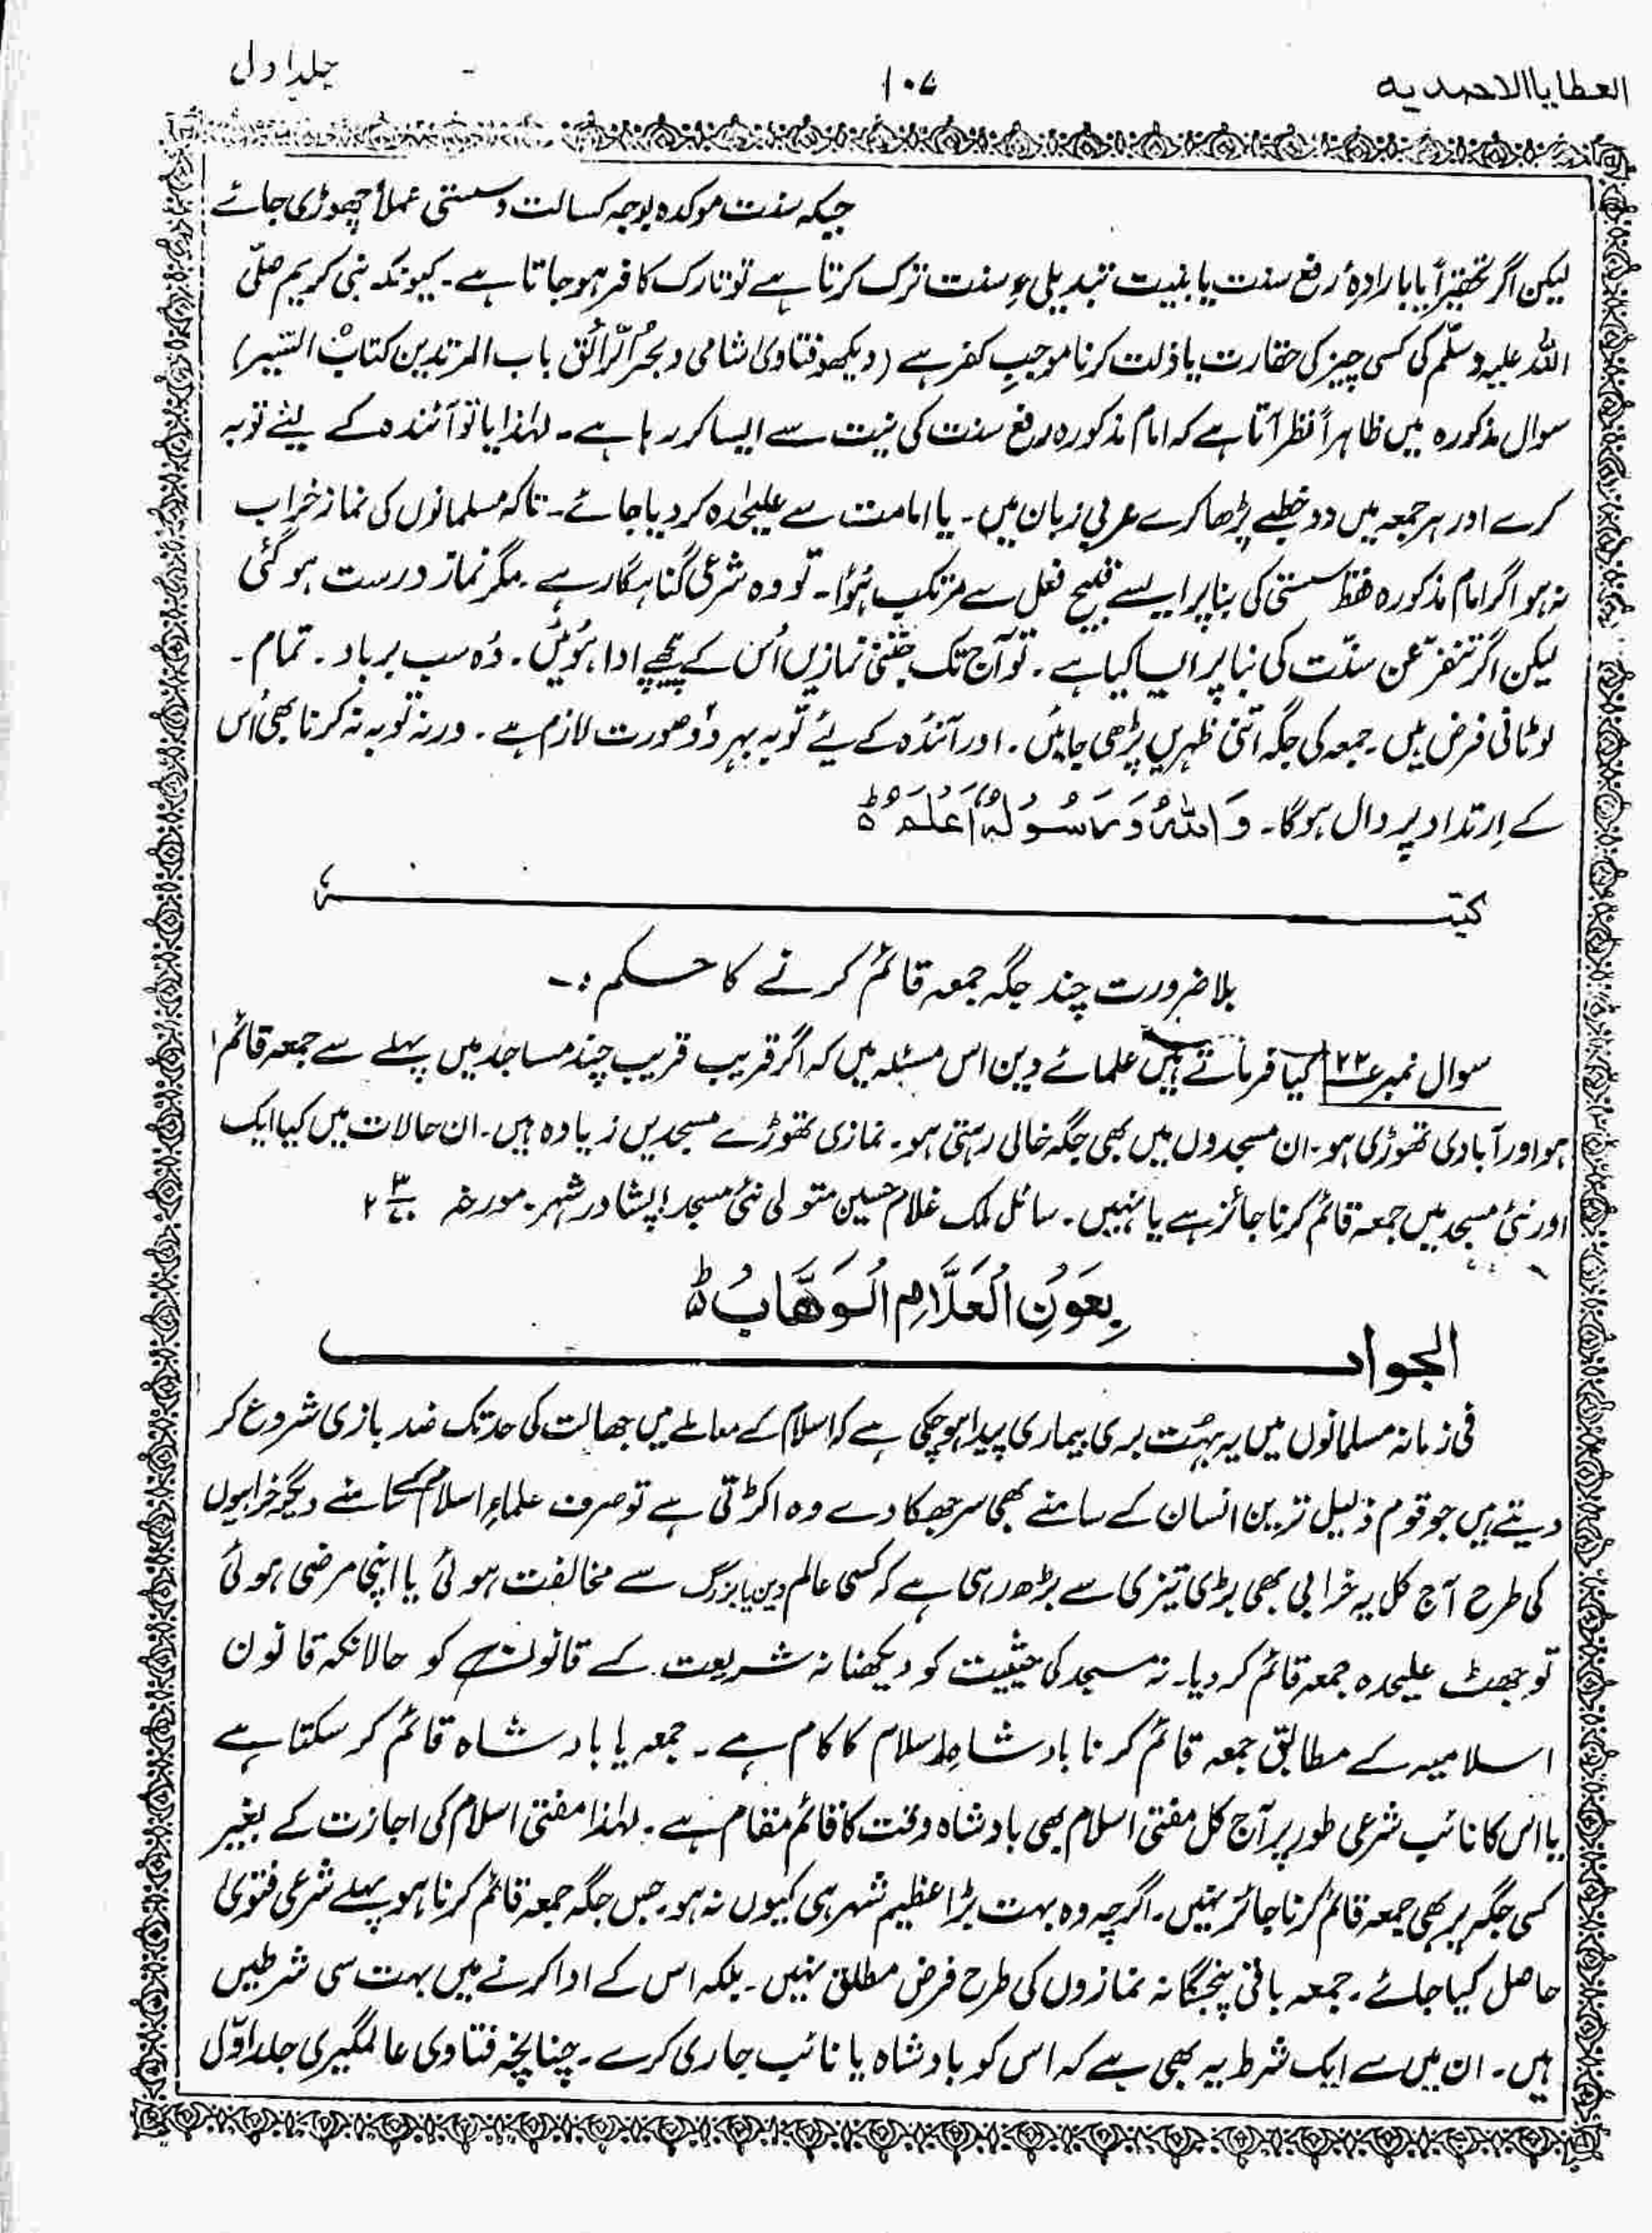 العطایا الاحمدیہ ۱۰۷ جلد اول
جبکہ سنت موکدہ بوجہ کسالت و سستی عملاً چھوڑی جائے
لیکن اگر تحقیراً یا بارادۂ رفع سنت یا بنیت تبدیلیء سنت ترک کرتا ہے تو تارک کافر ہو جاتا ہے۔ کیونکہ نبی کریم صلّی
اللہ علیہ وسلّم کی کسی چیز کی حقارت یا ذلت کرنا موجبِ کفر ہے (دیکھو فتاویٰ شامی و بحرُ الرّائق باب المرتدین کتابُ السّیر)
سوال مذکورہ میں ظاہراً نظر آتا ہے کہ امام مذکورہ رفع سنت کی نیت سے ایسا کر رہا ہے۔ لہٰذا یا تو آئندہ کے لیئے توبہ
کرے اور ہر جمعہ میں دو خطبے پڑھا کرے عربی زبان میں۔ یا امامت سے علیٰحدہ کر دیا جائے۔ تاکہ مسلمانوں کی نماز خراب
نہ ہو اگر امام مذکورہ فقط سستی کی بنا پر ایسے قبیح فعل سے مرتکب ہُؤا۔ تو وہ شرعی گناہگار ہے۔ مگر نماز درست ہو گئی
لیکن اگر تنفر عن سنّت کی بنا پر ایسا کیا ہے۔ تو آج تک جتنی نمازیں اُس کے پیچھے ادا ہُوئیں۔ وُہ سب برباد۔ تمام۔
لوٹانی فرض ہیں۔ جمعہ کی جگہ اتنی ظہریں پڑھی جائیں۔ اور آئندُہ کے لیے توبہ بہر دو صورت لازم ہے۔ ورنہ توبہ نہ کرنا بھی اُس
کے اِرتداد پر دال ہوگا۔ وَاللہُ وَرَسُوْلُہٗ اَعْلَمُ ط
کتبہ
بلا ضرورت چند جگہ جمعہ قائم کرنے کا حکم :۔
سوال نمبر ۲۲ کیا فرماتے ہیں علمائے دین اس مسئلہ میں کہ اگر قریب قریب چند مساجد میں پہلے سے جمعہ قائم
ہو اور آبادی تھوڑی ہو۔ ان مسجدوں میں بھی جگہ خالی رہتی ہو۔ نمازی تھوڑے مسجدیں زیادہ ہیں۔ ان حالات میں کیا ایک
اور نئی مسجد میں جمعہ قائم کرنا جائز ہے یا نہیں۔ سائل ملک غلام حسین متولی نئی مسجد پشاور شہر۔ مورخہ
بِعَوْنِ الْعَلَّامِ الْوَھَّابُ ط
الجواب
فی زمانہ مسلمانوں میں یہ بہُت بری بیماری پیدا ہو چکی ہے کہ اسلام کے معاملے میں جھالت کی حد تک ضد بازی شروع کر
دیتے ہیں جو قوم ذلیل ترین انسان کے سامنے بھی سر جھکا دے وہ اکڑتی ہے تو صرف علماءِ اسلام کے سامنے دیگر خرابیوں
کی طرح آج کل یہ خرابی بھی بڑی تیزی سے بڑھ رہی ہے کہ کسی عالم دین یا بزرگ سے مخالفت ہوئی یا اپنی مرضی ہوئی
تو جھٹ علیحدہ جمعہ قائم کر دیا۔ نہ مسجد کی حیثیت کو دیکھنا نہ شریعت کے قانون کو حالانکہ قانون
اسلامیہ کے مطابق جمعہ قائم کرنا بادشاہِ اسلام کا کام ہے۔ جمعہ یا بادشاہ قائم کر سکتا ہے
یا اس کا نائب شرعی طور پر آج کل مفتی اسلام بھی بادشاہ وقت کا قائم مقام ہے۔ لہٰذا مفتی اسلام کی اجازت کے بغیر
کسی جگہ پر بھی جمعہ قائم کرنا جائز نہیں۔ اگرچہ وہ بہت بڑا عظیم شہر ہی کیوں نہ ہو۔ جس جگہ جمعہ قائم کرنا ہو پہلے شرعی فتویٰ
حاصل کیا جائے۔ جمعہ باقی پنجگانہ نمازوں کی طرح فرض مطلق نہیں۔ بلکہ اس کے ادا کرنے میں بہت سی شرطیں
ہیں۔ ان میں سے ایک شرط یہ بھی ہے کہ اس کو بادشاہ یا نائب جاری کرے۔ چنانچہ فتاوی عالمگیری جلد اوّل